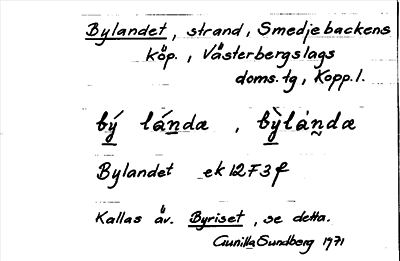 Bylandet, strand, Smedjebackens
köp., Västerbergslags
doms.tg, Kopp.l.
bý lánda, , bỳlȧn̰dæ
Bylandet ek 12F3f
Kallas äv. Byriset, se detta.
Gunilla Sundberg 1971